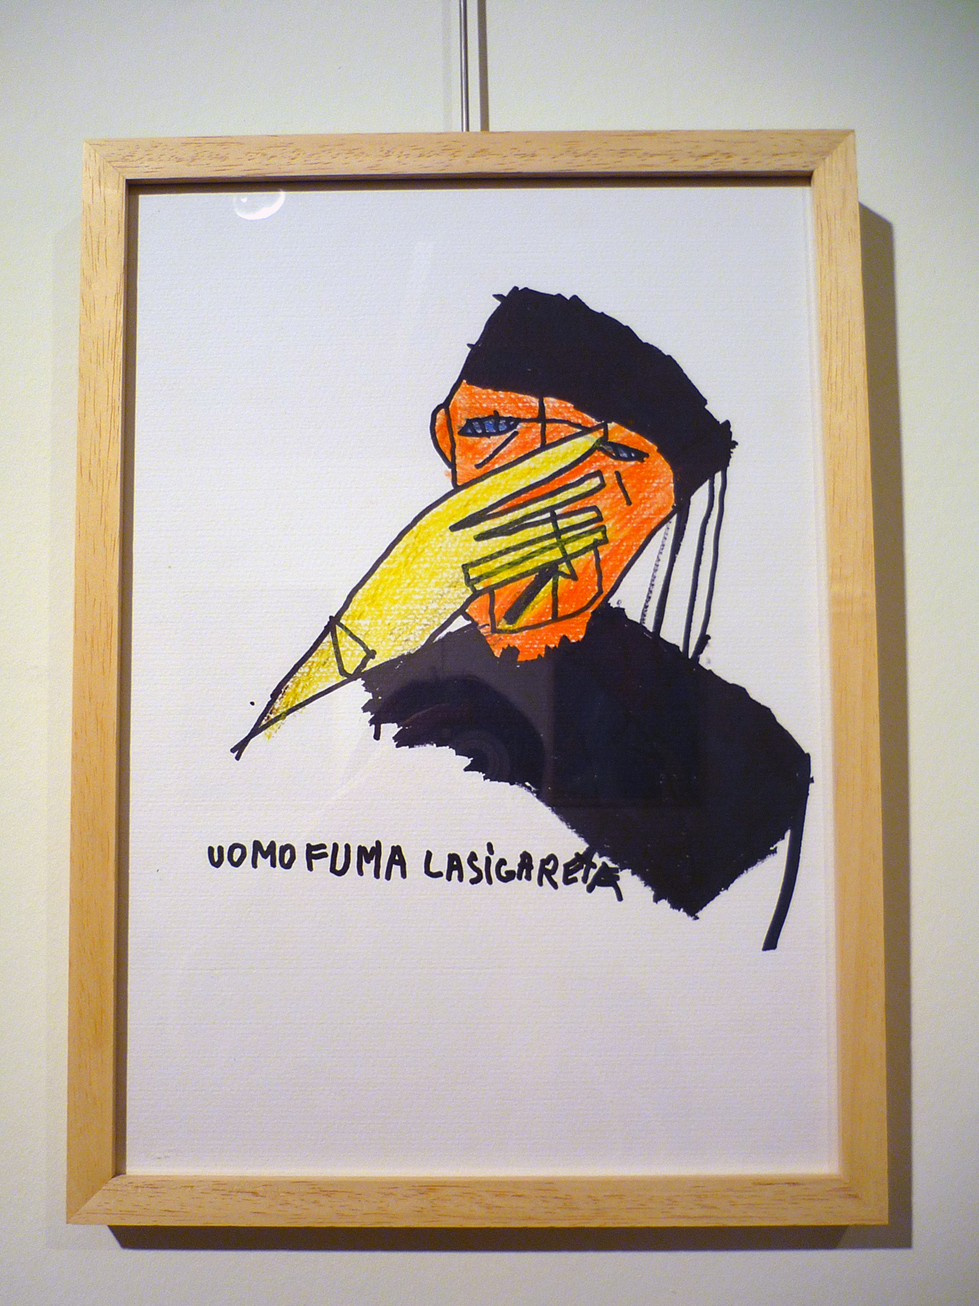 UOMO FUMA LA SiGARETA